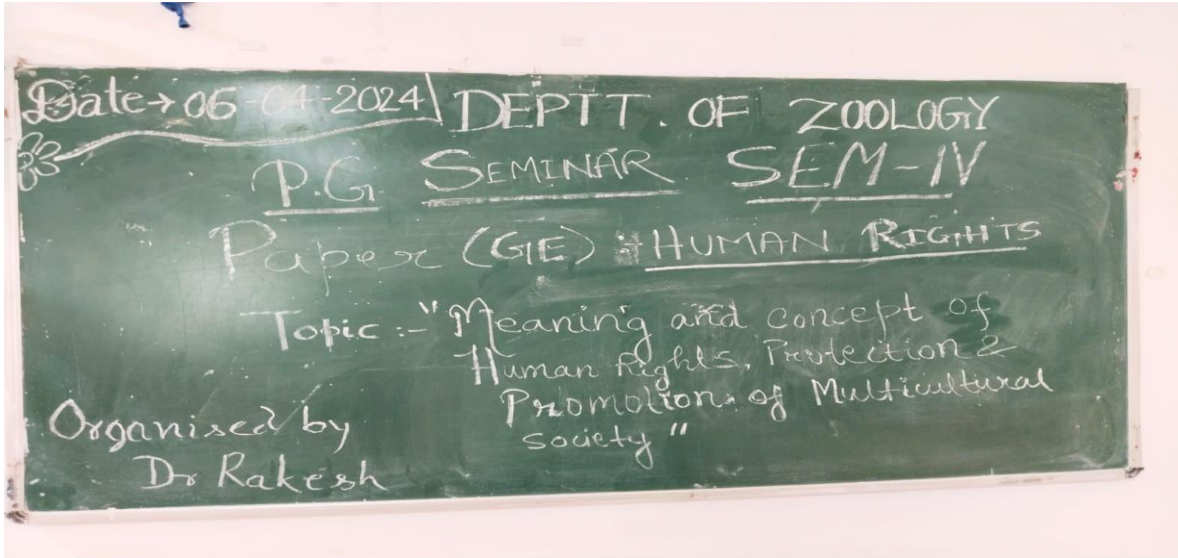 Date→ 06-04-2024 DEPTT. OF ZOOLOGY
P.G. SEMINAR SEM-IV
Paper (GE) : HUMAN RIGHTS
Topic :- "Meaning and concept of
Human Rights, Protection &
Promotion of Multicultural
society"
Organised by
Dr Rakesh